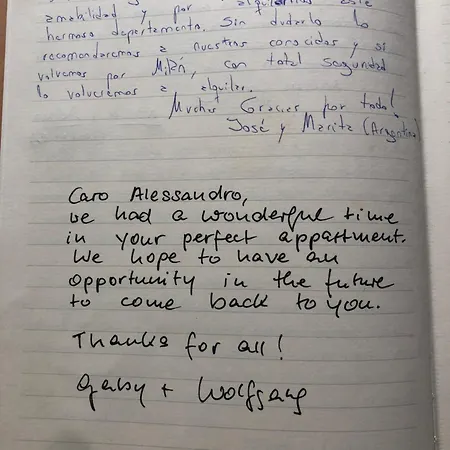 amabilidad y por alquilarnos este
hermoso departamento. Sin dudarlo lo
recomendaremos a nuestros conocidos y si
volvemos por Milán, con total seguridad
lo volveremos a alquilar.
Muchas Gracias por todo!
José y Maritza (Argentina)
Caro Alessandro,
we had a wonderful time
in your perfect appartment.
We hope to have an
opportunity in the future
to come back to you.
Thanks for all!
Gaby + Wolfgang